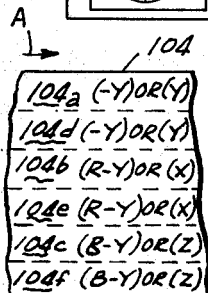 A
104
104a (-Y)OR(Y)
104d (-Y)OR(Y)
104b (R-Y)OR(X)
104e (R-Y)OR(X)
104c (B-Y)OR(Z)
104f (B-Y)OR(Z)